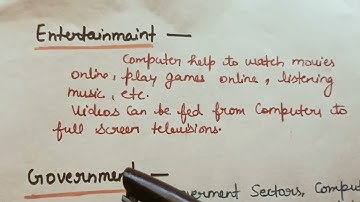 Entertainmaint —
Computer help to watch movies
online, play games online, listening
music, etc.
Videos can be fed from Computers to
full screen televisions.
Government —
Sectors, Comput